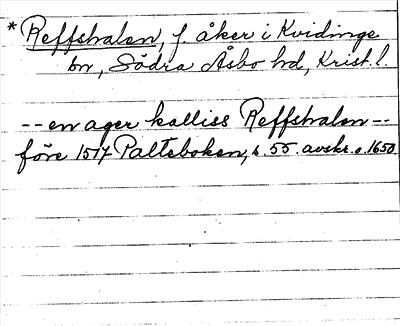 * Reffshalan, f. åker i Kvidinge
bn, Södra Åsbo hd, Krist. l.
-- en ager kalliss Reffshalan --
före 1517 Palteboken, s. 55. avskr. o. 1650.